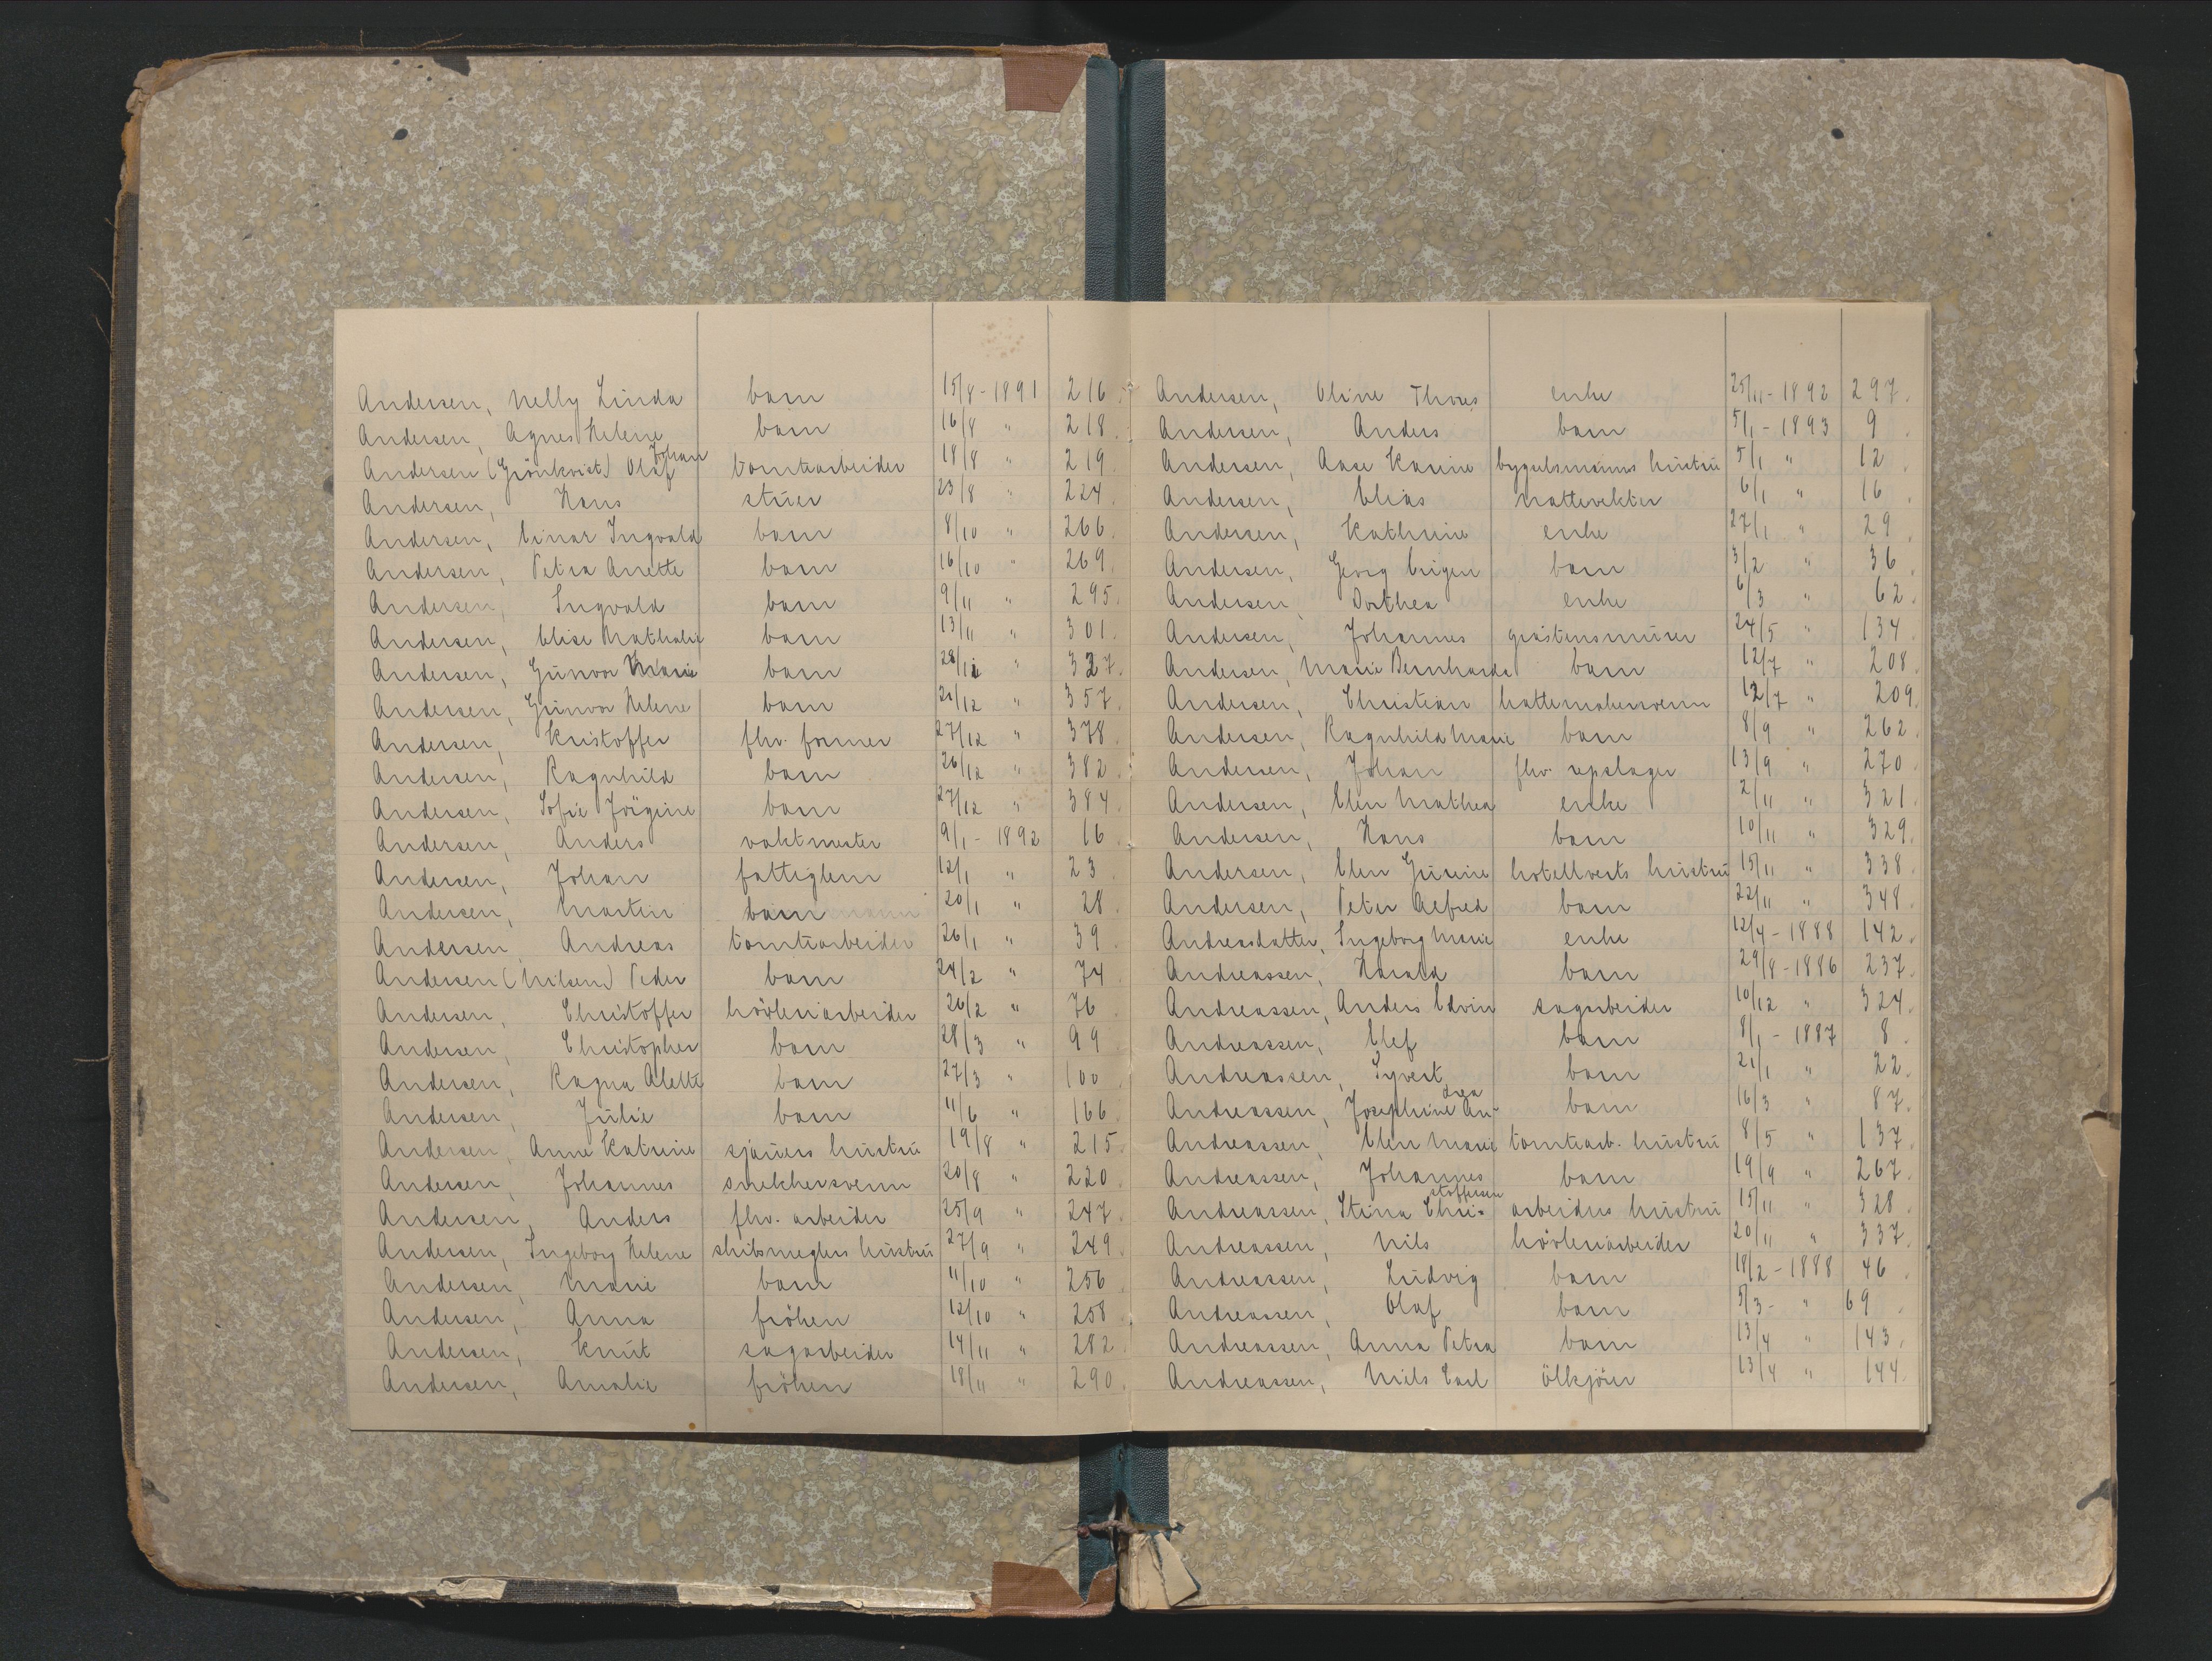 Andersen, Nelly Linda barn 15/8 - 1891 216.
Andersen, Agnes Helene barn 16/8 " 218.
Andersen (Grönkvist) Olaf Johan tomtearbeider 18/8 " 219.
Andersen, Hans stuer 23/8 " 224.
Andersen, Einar Ingvald barn 8/10 " 266.
Andersen, Petra Anette barn 16/10 " 269.
Andersen, Ingvald barn 9/11 " 295.
Andersen, Elise Mathalie barn 13/11 " 301.
Andersen, Gunvor Marie barn 28/12 " 327.
Andersen, Gunvor Helene barn 21/12 " 357.
Andersen, Kristoffer fhv. former 27/12 " 378.
Andersen, Ragnhild barn 26/12 " 382.
Andersen, Sofie Jörgine barn 27/12 " 384.
Andersen, Anders vaktmester 9/1 - 1892 16.
Andersen, Johan fattiglem 12/1 " 23.
Andersen, Martin barn 20/1 " 28.
Andersen, Andreas tomtearbeider 26/1 " 39.
Andersen (Nilsen) Peder barn 24/2 " 74.
Andersen, Christoffer hövleriarbeider 26/2 " 76.
Andersen, Christopher barn 28/3 " 99.
Andersen, Ragna Alette barn 27/3 " 100.
Andersen, Julie barn 11/6 " 166.
Andersen, Anne Katrine sjauers hustru 19/8 " 215.
Andersen, Johannes snekkersvenn 20/8 " 220.
Andersen, Anders fhv. arbeider 25/9 " 247.
Andersen, Ingeborg Helene skibsmeglers hustru 27/9 " 249.
Andersen, Marie barn 11/10 " 256.
Andersen, Anna fröken 12/10 " 258.
Andersen, Knut sagarbeider 14/11 " 282.
Andersen, Amalie fröken 18/11 " 290.
Andersen, Oline Thores enke 25/11 - 1892 297.
Andersen, Anders barn 5/1 - 1893 9.
Andersen, Aase Karine bygselsmanns hustru 5/1 " 12.
Andersen, Elias nattevekter 6/1 " 16.
Andersen, Kathrine enke 27/1 " 29.
Andersen, Georg Eugen barn 3/2 " 36.
Andersen, Dorthea enke 6/3 " 62.
Andersen, Johannes gråstensmurer 24/5 " 134.
Andersen, Marie Bernharda barn 12/7 " 208.
Andersen, Christian hattemakersvenn 12/7 " 209.
Andersen, Ragnhild Marie barn 8/9 " 262.
Andersen, Johan fhv. repslager 13/9 " 270.
Andersen, Elen Mathea enke 2/11 " 321.
Andersen, Hans barn 10/11 " 329.
Andersen, Elen Gurine hotellverts hustru 15/11 " 338.
Andersen, Peter Alfred barn 22/11 " 348.
Andreasdatter, Ingeborg Marie enke 12/4 - 1888 142.
Andreassen, Harald barn 29/8 - 1886 237.
Andreassen, Anders Edvin sagarbeider 10/12 " 324.
Andreassen, Elef barn 8/1 - 1887 8.
Andreassen, Syvert barn 21/1 " 22.
Andreassen, Josephine Andrea barn 16/3 " 87.
Andreassen, Elen Marie tomtearb. hustru 8/5 " 137.
Andreassen, Johannes barn 19/9 " 267.
Andreassen, Stina Christoffersen arbeiders hustru 15/11 " 328.
Andreassen, Nils hövleriarbeider 20/11 " 337.
Andreassen, Ludvig barn 18/2 - 1888 46.
Andreassen, Olaf barn 5/3 - " 69.
Andreassen, Anna Petra barn 13/4 " 143.
Andreassen, Nils Carl ölkjörer 13/4 " 144.